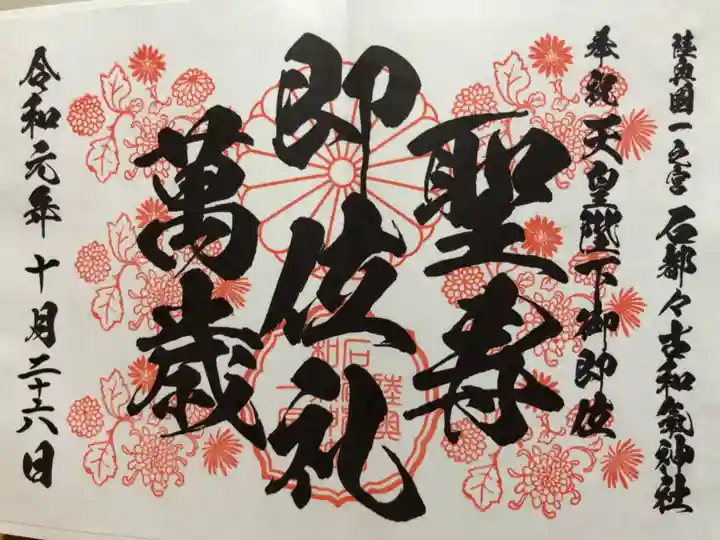 陸奥國一之宮 石都々古和氣神社
奉祝天皇陛下御即位
聖寿
即位礼
萬歳
令和元年十月二十六日